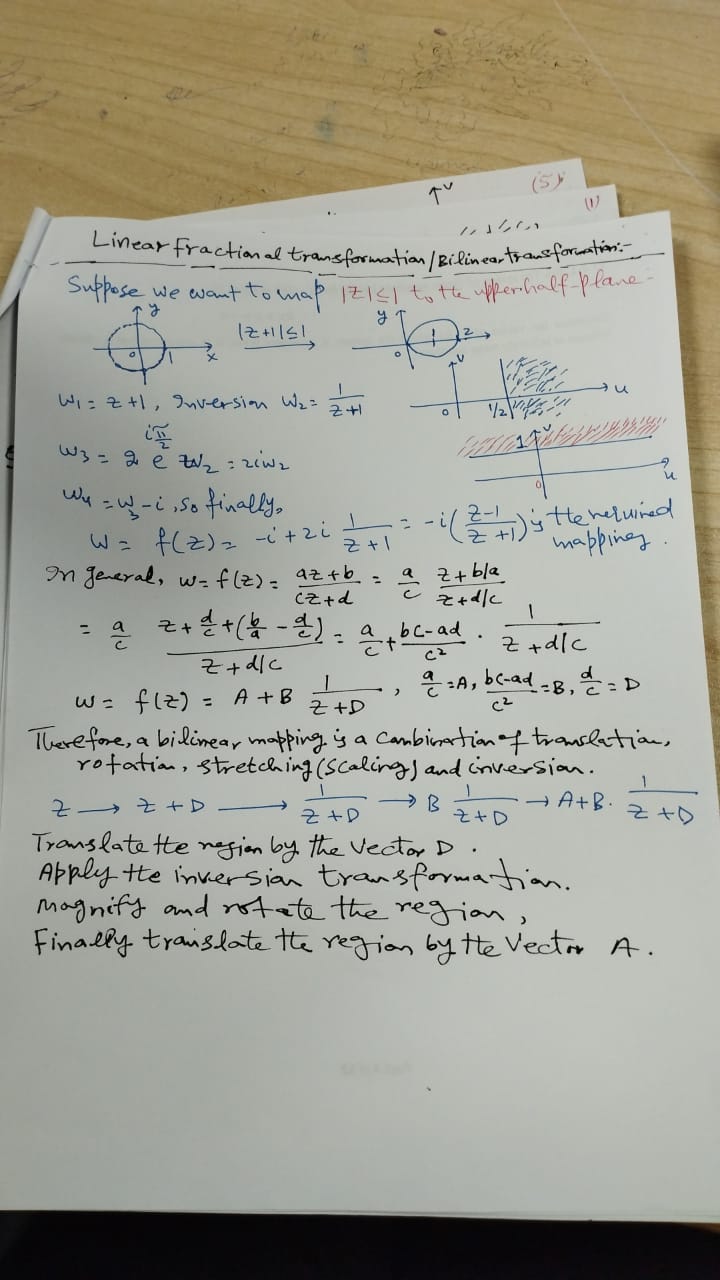 ↑v (5)
(1)
Linear fractional transformation/Bilinear transformation:-
Suppose we want to map |z|≤1 to the upper half-plane-
y 1 x 0 |z+1|≤1 y 0 1 2
w₁ = z+1, Inversion w₂ = 1/(z+1) v 0 1/2 u
w₃ = 2 e^(iπ/2) w₂ = 2iw₂ 1 v 0 u
w₄ = w₃-i, so finally,
w = f(z) = -i+2i 1/(z+1) = -i((z-1)/(z+1)) is the required mapping.
In general, w = f(z) = (az+b)/(cz+d) = a/c (z+b/a)/(z+d/c)
= a/c (z + d/c + (b/a - d/c))/(z+d/c) = a/c + (bc-ad)/c² · 1/(z+d/c)
w = f(z) = A+B 1/(z+D), a/c = A, (bc-ad)/c² = B, d/c = D
Therefore, a bilinear mapping is a combination of translation,
rotation, stretching (scaling) and inversion.
z → z+D → 1/(z+D) → B 1/(z+D) → A+B. 1/(z+D)
Translate the region by the vector D.
Apply the inversion transformation.
Magnify and rotate the region,
Finally translate the region by the vector A.